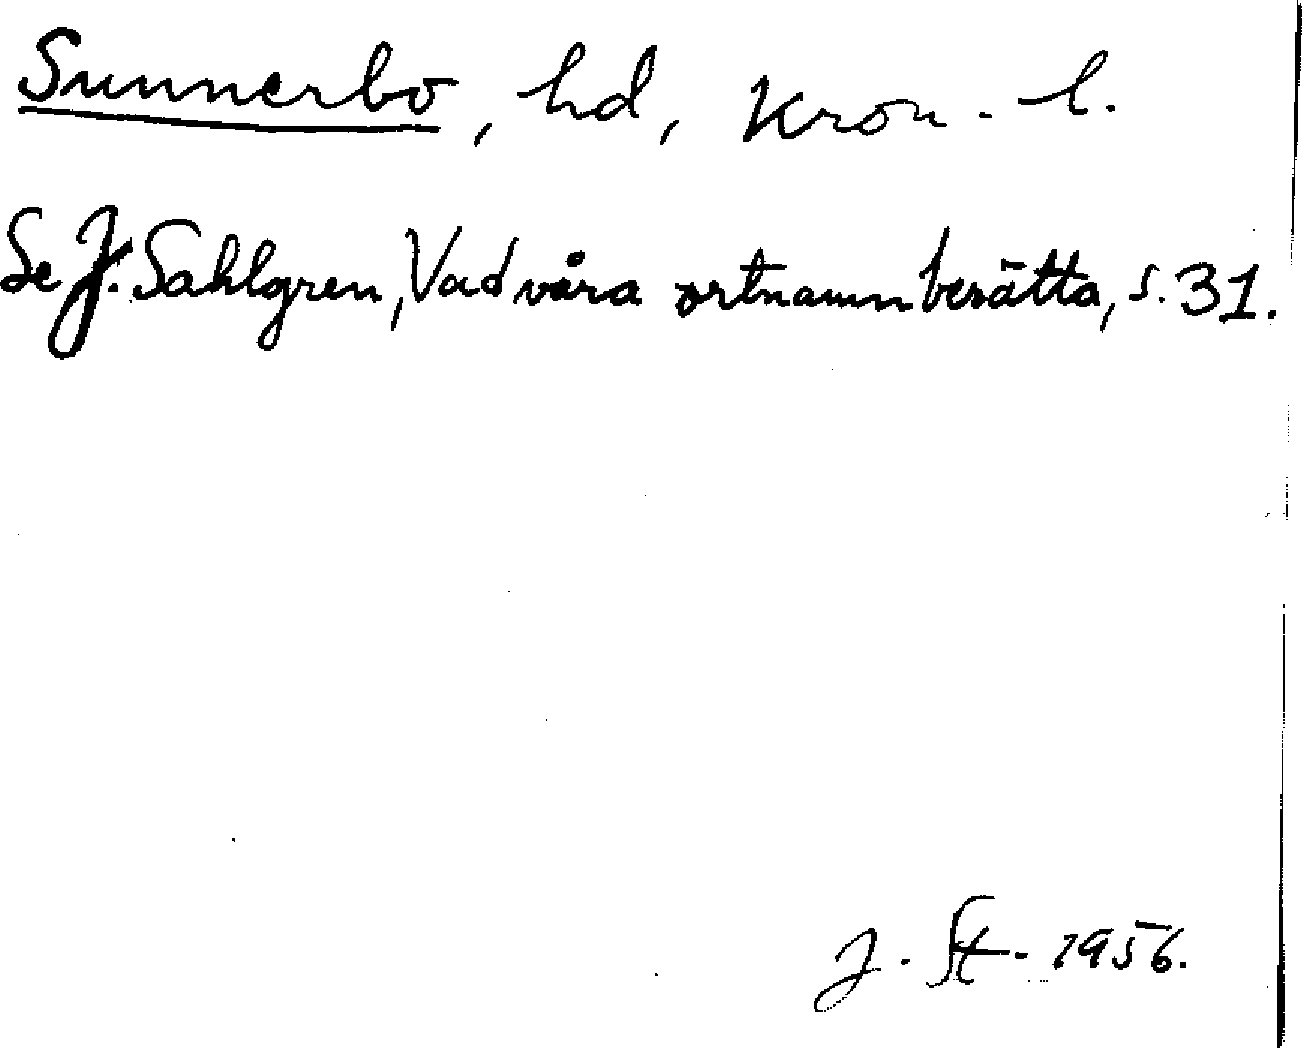 Sunnerbo, hd, Kron. l.
Se J. Sahlgren, Vad våra ortnamn berätta, s. 31.
J. St. 1956.